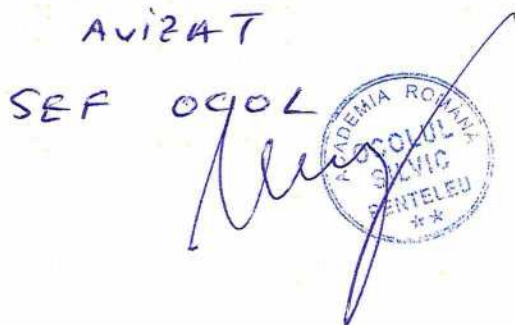 AVIZAT
SEF OCOL
ACADEMIA ROMÂNĂ
OCOLUL
SILVIC
PENTELEU
**